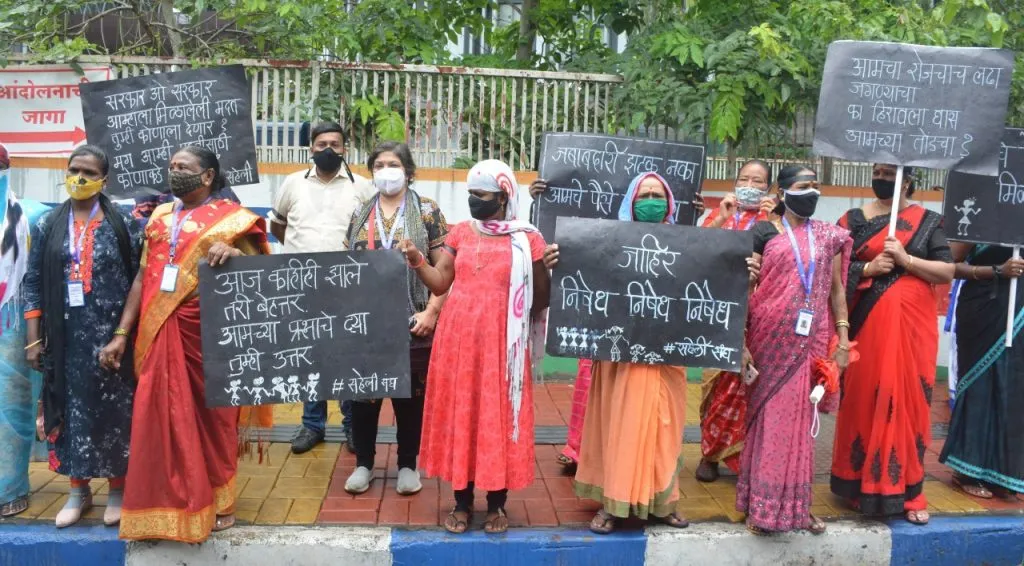 आंदोलनाची
जागा
सरकार ओ सरकार
आम्हाला मिळालेली मदत
तुम्ही कोणाला देणार हे
आज काहीही झाले
तरी बेहत्तर
आमच्या प्रश्नाचे द्या
तुम्ही उत्तर
#सहेली संघ
जबाबदारी झटकू नका
आमचे पैसे
जाहिर
निषेध निषेध निषेध
#सहेली संघ
आमचा रोजचाच लढा
जगण्याचा
का हिरावला घास
आमच्या तोंडचा हे